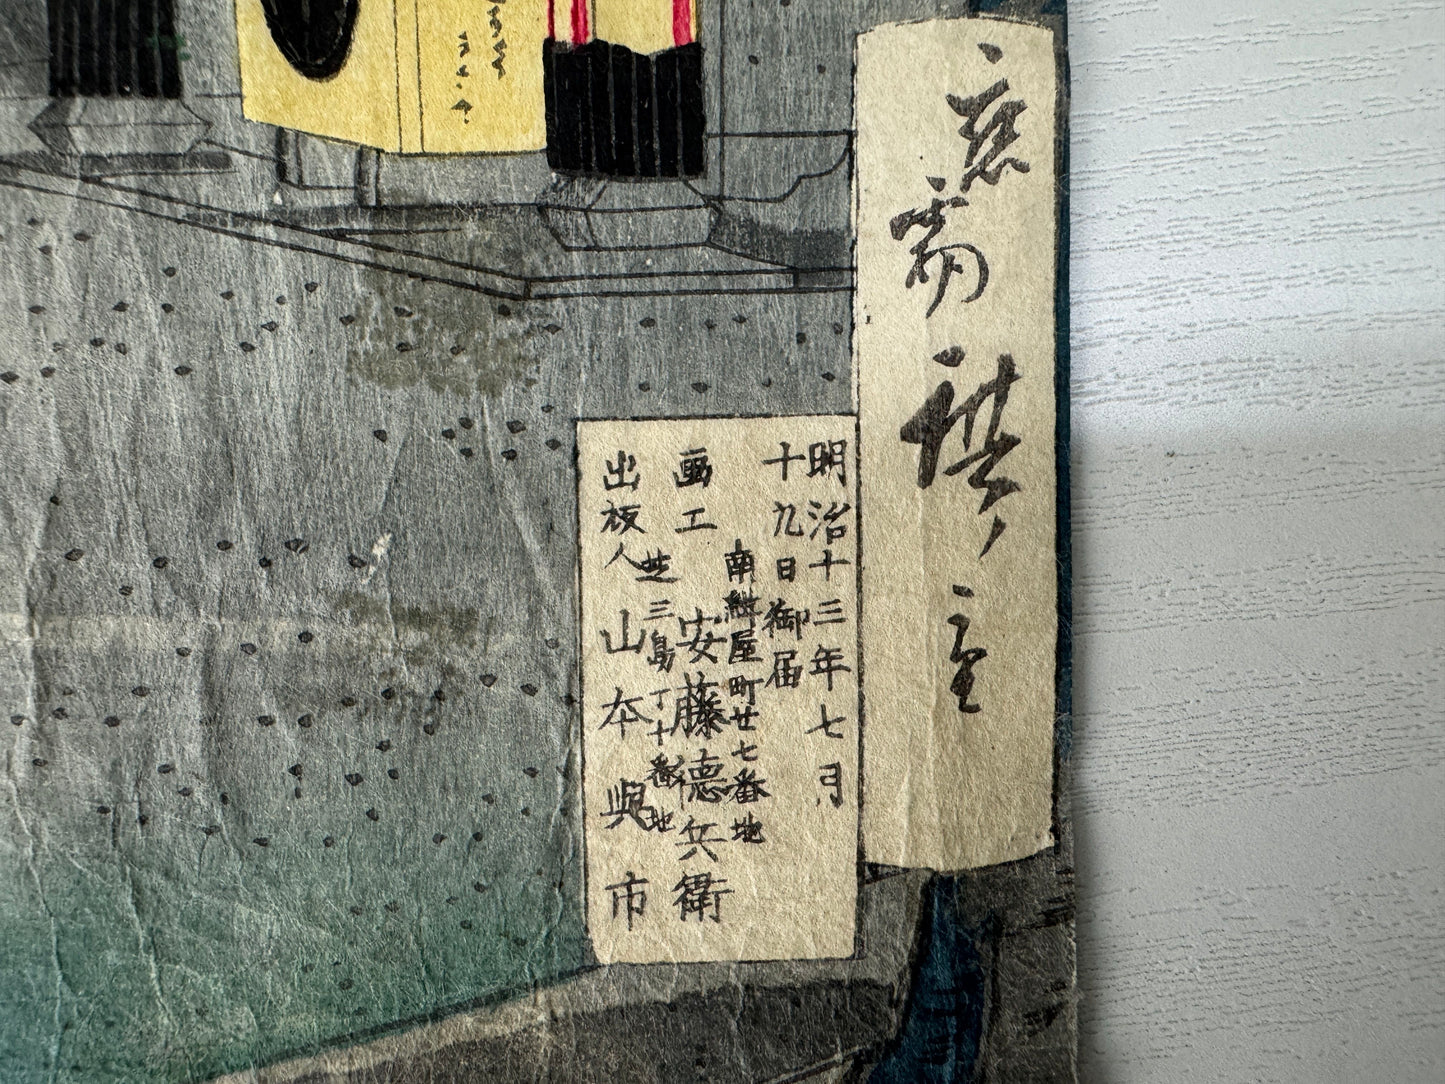 應需
廣重
明治十三年七月
十九日御届
南紺屋町廿七番地
画工 安藤德兵衛
芝三島丁十番地
出板人 山本與市